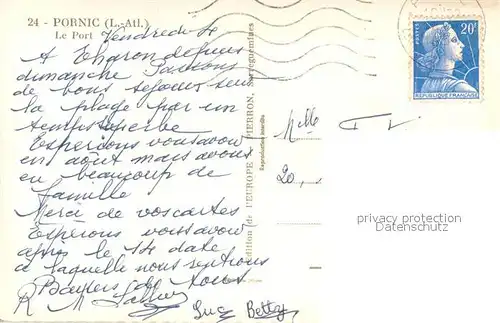 24 - PORNIC (L.-Atl.)
Le Port
Vendredi
A Tharon depuis
dimanche Passons
de bons sejours sur
la plage par un
temps superbe
Esperions vous avoir
en août mais avons
eu beaucoup de
famille
Merci de vos cartes
Espérons vous avoir
après le 14 date
à laquelle nous rentrons
Baisers de tous
R M
Luc Betty
Edition de l'EUROPE PIERRON, Sarreguemines
Reproduction interdite
Mlle
20,
POSTES
20F
REPUBLIQUE FRANÇAISE
privacy protection
Datenschutz